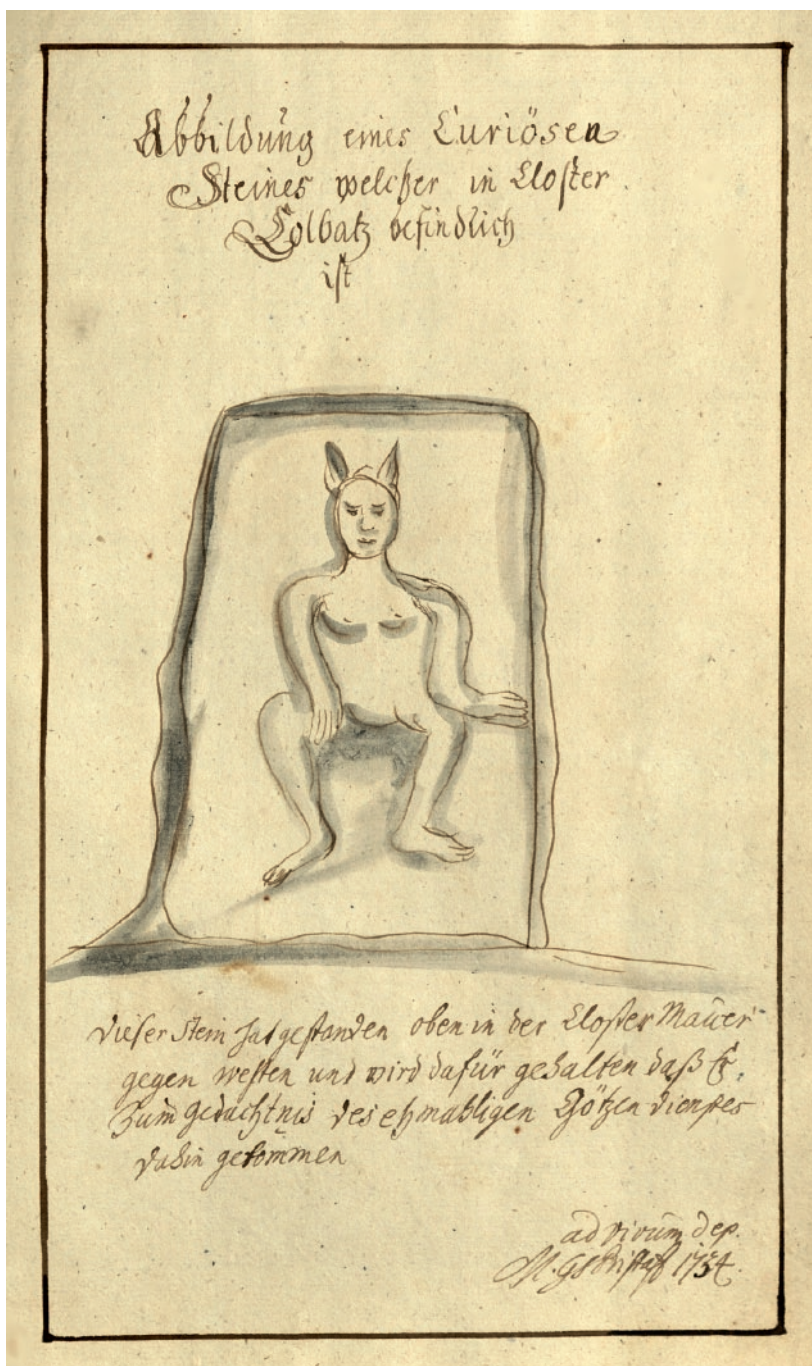 Abbildung eines Curiösen
Steines welcher in Closter
Colbatz befindlich
ist
dieser Stein hat gestanden oben in der Closter Mauer
gegen westen und wird dafür gehalten daß Er,
Zum Gedächtnis des ehmahligen Götzen dienstes
dahin gekommen
ad vivum dep.
M. 1734.